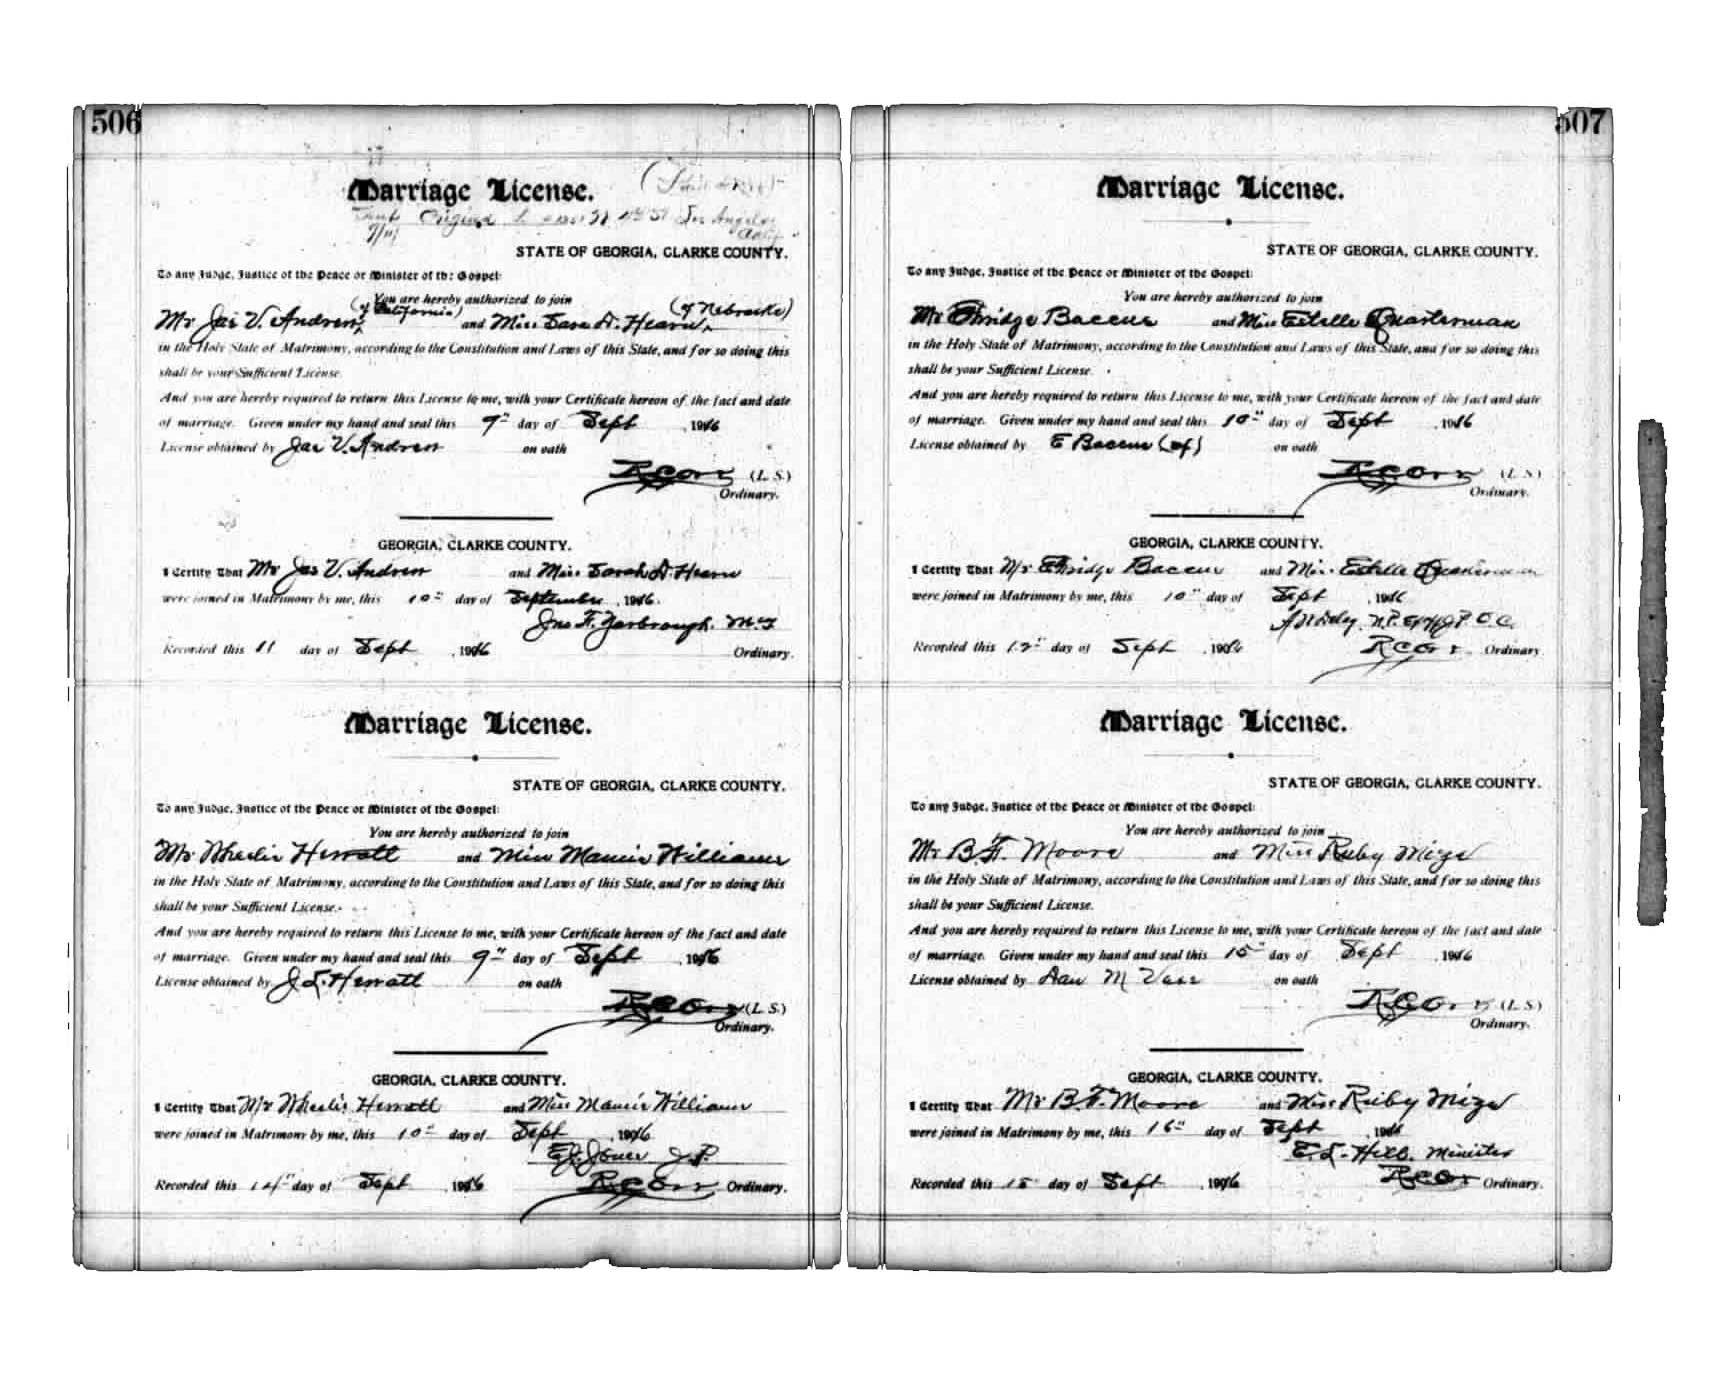 506
Marriage License.
Original
Los Angeles
STATE OF GEORGIA, CLARKE COUNTY.
To any Judge, Justice of the Peace or Minister of the Gospel:
You are hereby authorized to join
(of California) (of Nebraska)
Mr Jas V. Andrew and Miss Sara D. Hearn
in the Holy State of Matrimony, according to the Constitution and Laws of this State, and for so doing this
shall be your Sufficient License.
And you are hereby required to return this License to me, with your Certificate hereon of the fact and date
of marriage. Given under my hand and seal this 9" day of Sept , 1916
License obtained by Jas V. Andrew on oath
R C Orr (L. S.)
Ordinary.
GEORGIA, CLARKE COUNTY.
I Certify That Mr Jas V. Andrew and Miss Sarah D. Hearn
were joined in Matrimony by me, this 10" day of September , 1916.
Jno F. Yarbrough. M.G
Recorded this 11 day of Sept , 1916 Ordinary.
Marriage License.
STATE OF GEORGIA, CLARKE COUNTY.
To any Judge, Justice of the Peace or Minister of the Gospel:
You are hereby authorized to join
Mr Wheelis Hewatt and Miss Mamie Williams
in the Holy State of Matrimony, according to the Constitution and Laws of this State, and for so doing this
shall be your Sufficient License.
And you are hereby required to return this License to me, with your Certificate hereon of the fact and date
of marriage. Given under my hand and seal this 9" day of Sept , 1916
License obtained by J. L. Hewatt on oath
R C Orr (L. S.)
Ordinary.
GEORGIA, CLARKE COUNTY.
I Certify That Mr Wheelis Hewatt and Miss Mamie Williams
were joined in Matrimony by me, this 10" day of Sept , 1916
E. J. Jones J. P.
Recorded this 14" day of Sept , 1916 R C Orr Ordinary.
507
Marriage License.
STATE OF GEORGIA, CLARKE COUNTY.
To any Judge, Justice of the Peace or Minister of the Gospel:
You are hereby authorized to join
Mr Ethridge Baccus and Miss Estelle Quarterman
in the Holy State of Matrimony, according to the Constitution and Laws of this State, and for so doing this
shall be your Sufficient License.
And you are hereby required to return this License to me, with your Certificate hereon of the fact and date
of marriage. Given under my hand and seal this 10" day of Sept , 1916
License obtained by E Baccus on oath
R C Orr (L. S.)
Ordinary.
GEORGIA, CLARKE COUNTY.
I Certify That Mr Ethridge Baccus and Miss Estelle Quarterman
were joined in Matrimony by me, this 10" day of Sept , 1916
N.P. Ex Off J P. C. C.
Recorded this 12" day of Sept , 1916 R C Orr Ordinary
Marriage License.
STATE OF GEORGIA, CLARKE COUNTY.
To any Judge, Justice of the Peace or Minister of the Gospel:
You are hereby authorized to join
Mr B. F. Moore and Miss Ruby Mize
in the Holy State of Matrimony, according to the Constitution and Laws of this State, and for so doing this
shall be your Sufficient License.
And you are hereby required to return this License to me, with your Certificate hereon of the fact and date
of marriage. Given under my hand and seal this 15" day of Sept , 1916
License obtained by Dan M Vess on oath
R C Orr (L. S.)
Ordinary.
GEORGIA, CLARKE COUNTY.
I Certify That Mr B. F. Moore and Miss Ruby Mize
were joined in Matrimony by me, this 15" day of Sept , 1916
E. L. Hill. Minister
Recorded this 15 day of Sept , 1916 R C Orr Ordinary.